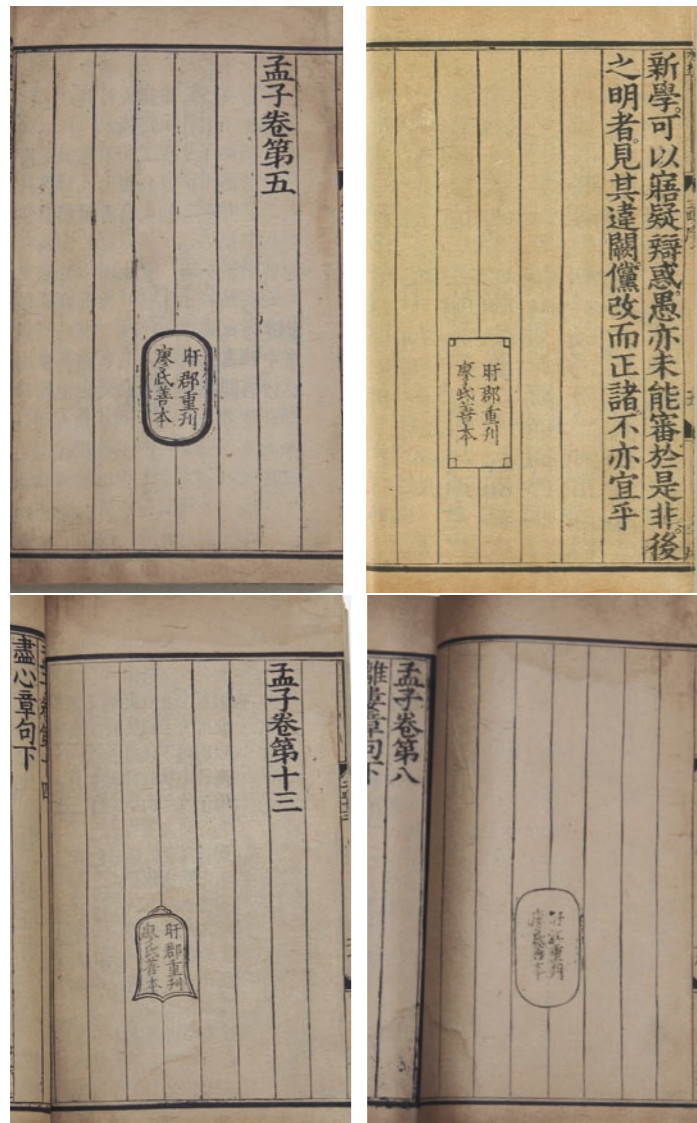 孟子卷第五
盱郡重刋
廖氏善本
新學可以寤疑辯惑愚亦未能審於是非後
之明者見其違闕儻改而正諸不亦宜乎
盱郡重刋
廖氏善本
孟子卷第十三
盱郡重刋
廖氏善本
盡心章句下
孟子卷第八
離婁章句下
重
廖氏善本